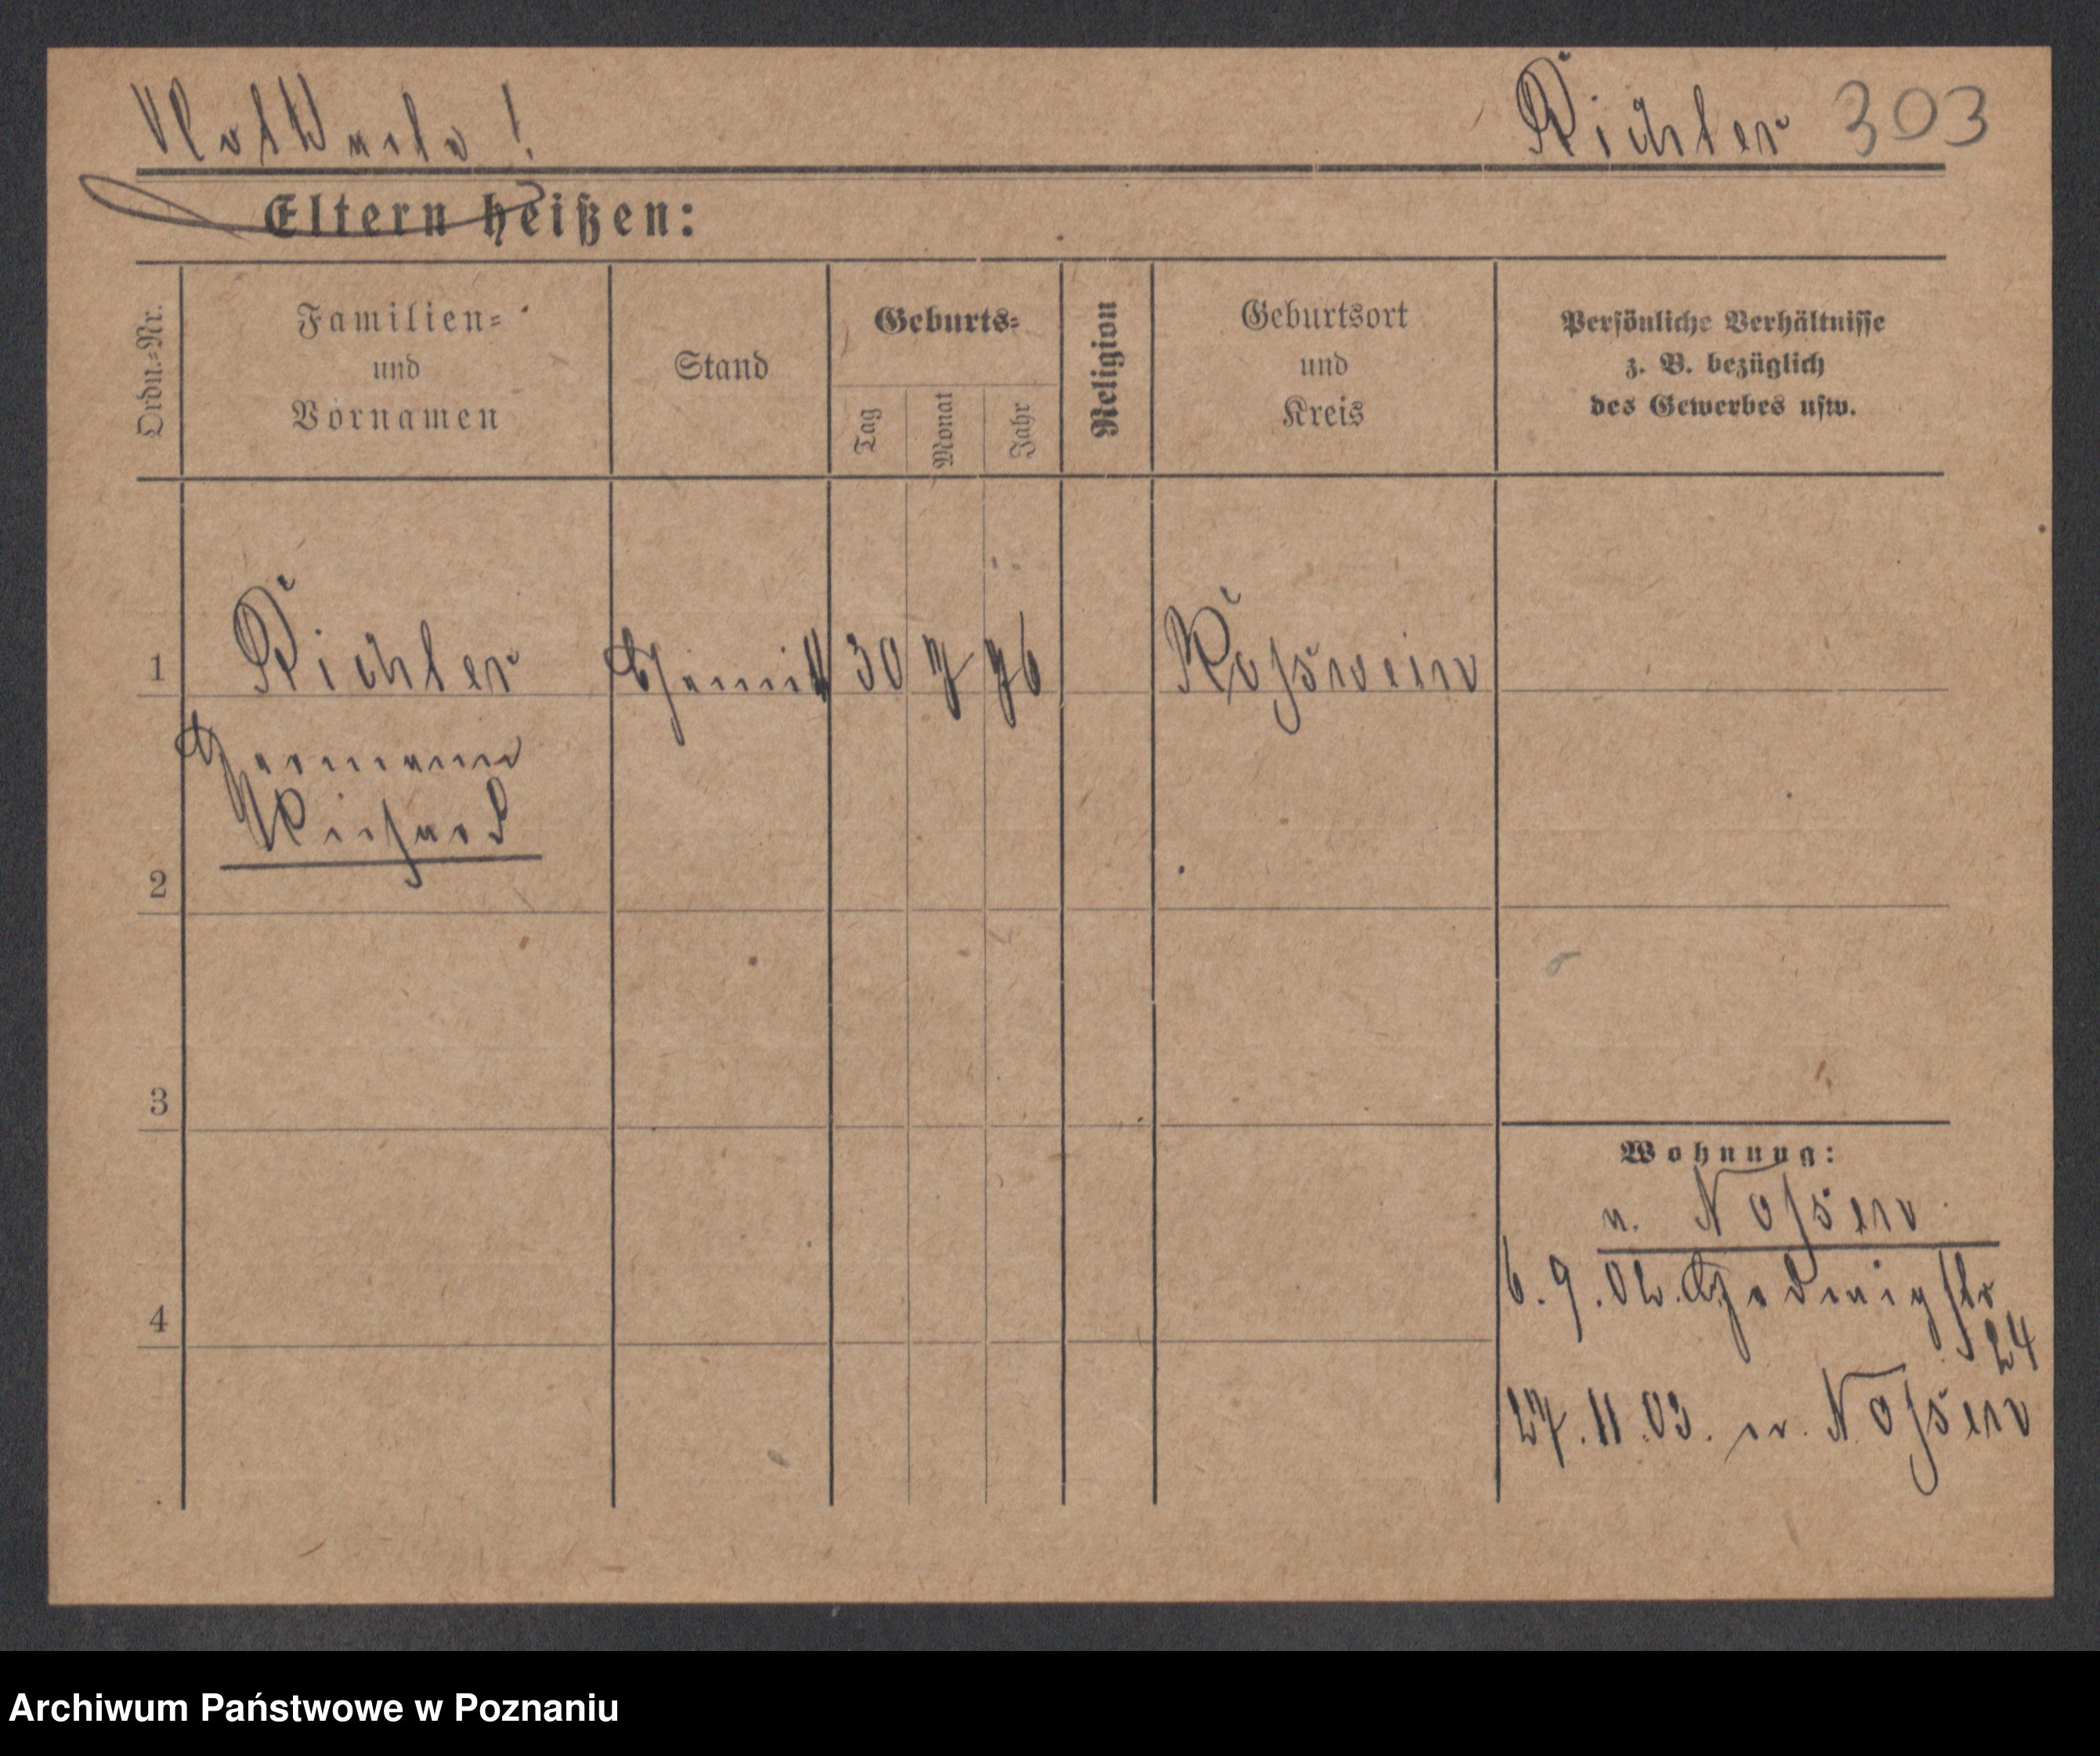 Richter 303
Eltern heißen:
Ordn.-Nr.
Familien-
und
Vornamen
Stand
Geburts-
Tag
Monat
Jahr
Religion
Geburtsort
und
Kreis
Persönliche Verhältnisse
z. B. bezüglich
des Gewerbes usw.
1
Richter
30 7 76
Rosswein
Hermann
Richard
2
3
4
Wohnung:
n. Nossen
6.9.02. Hedwigstr
24
27.11.03. n. Nossen
Archiwum Państwowe w Poznaniu